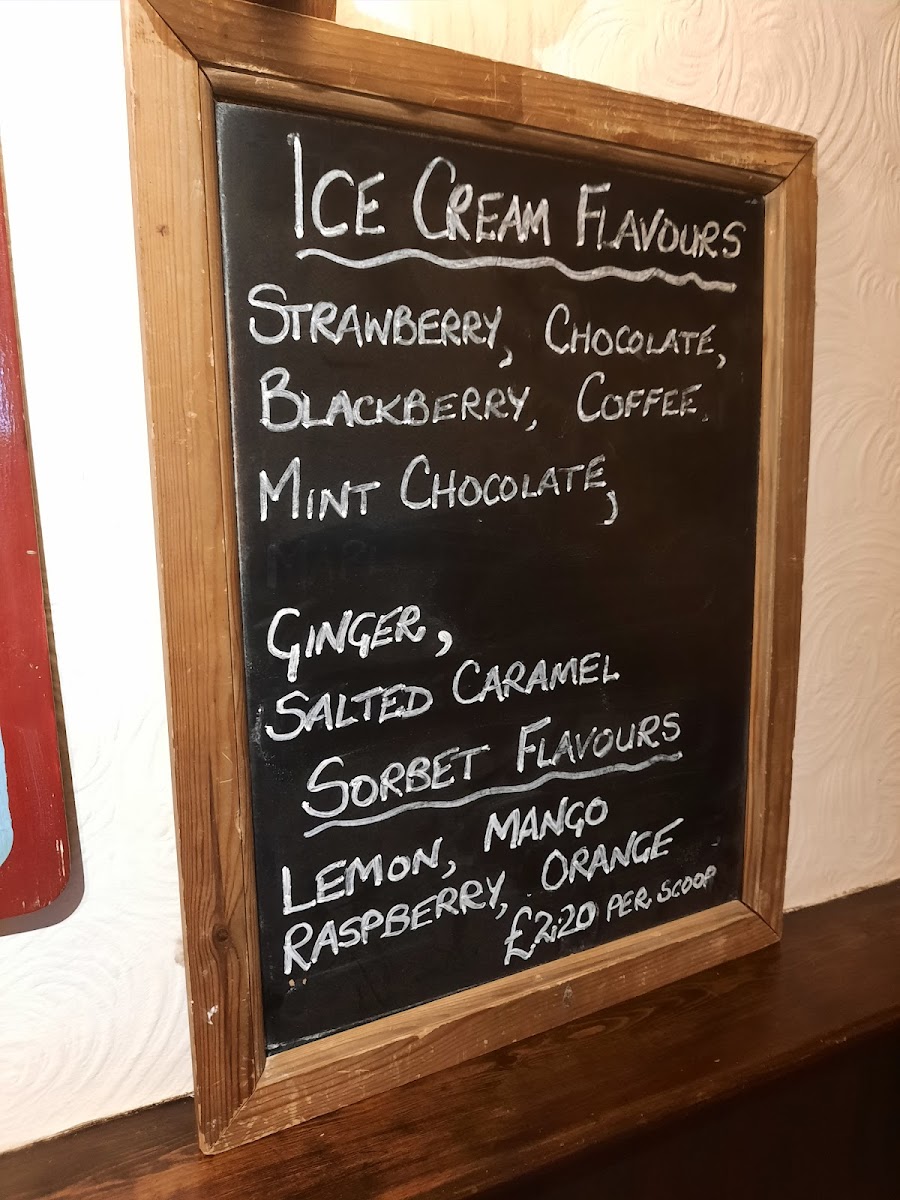 ICE CREAM FLAVOURS
STRAWBERRY, CHOCOLATE,
BLACKBERRY, COFFEE,
MINT CHOCOLATE,
GINGER,
SALTED CARAMEL
SORBET FLAVOURS
LEMON, MANGO
RASPBERRY, ORANGE
£2.20 PER SCOOP